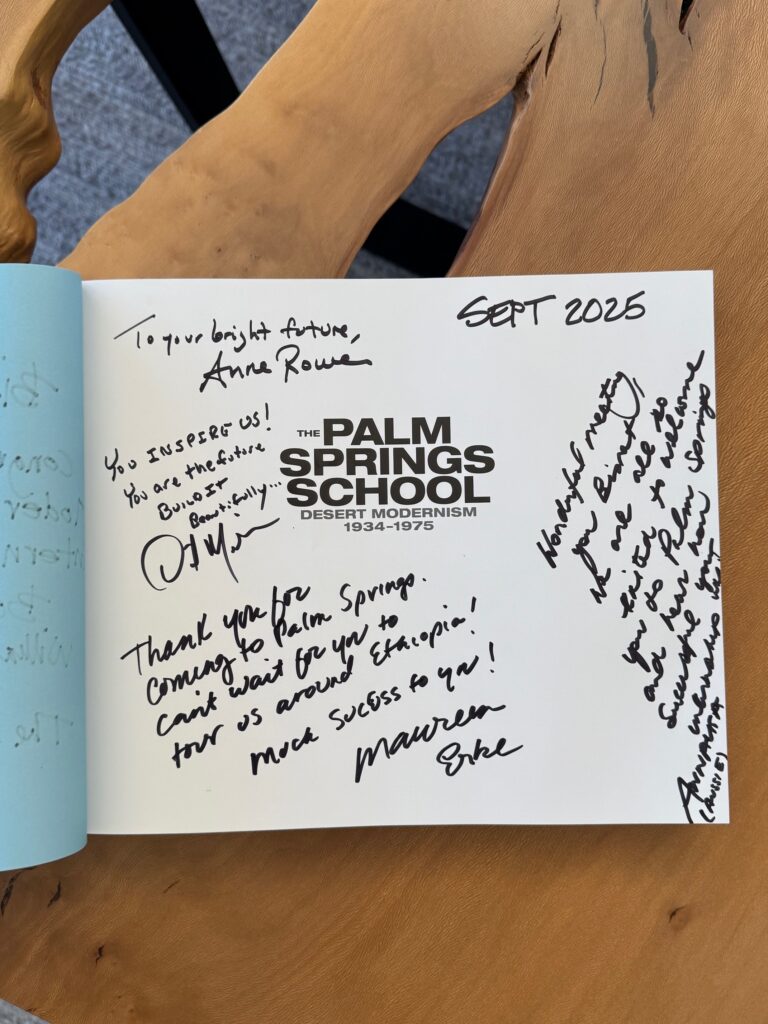 SEPT 2025
To your bright future,
Anne Rowe
You INSPIRE US!
You are the future
BUILD IT
Beautifully...
THE PALM
SPRINGS
SCHOOL
DESERT MODERNISM
1934-1975
Thank you for
coming to Palm Springs.
Can't wait for you to
tour us around Ethiopia!
Much Sucess to you!
Maureen
Erbe
Wonderful meeting
you
We are all so
excited to welcome
you to Palm Springs
and hear how
successful your
internship was!
ANNALISA
(AUSSIE)